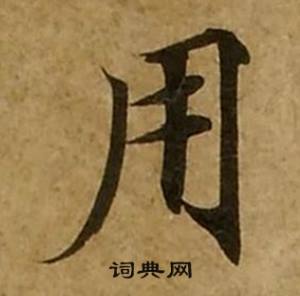 用
词典网